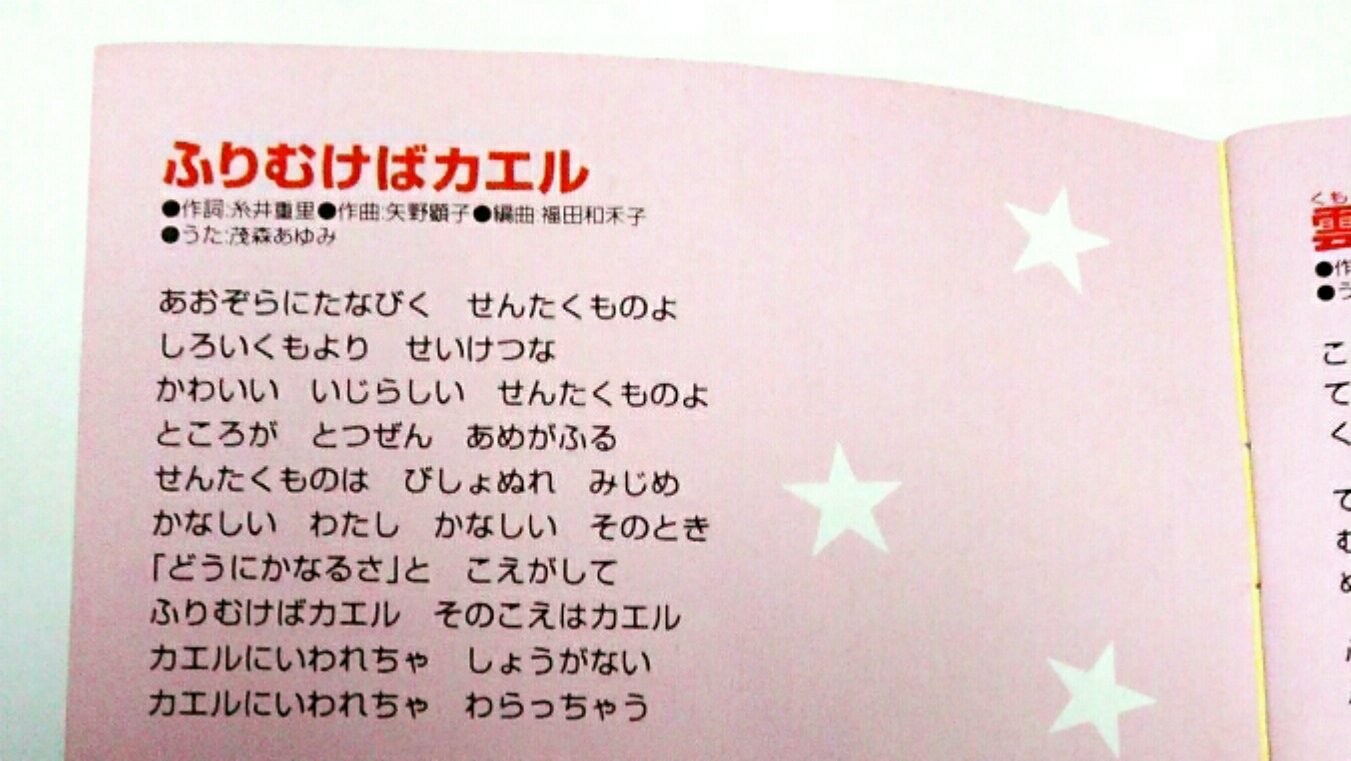 ふりむけばカエル
●作詞:糸井重里●作曲:矢野顕子●編曲:福田和禾子
●うた:茂森あゆみ
あおぞらにたなびく　せんたくものよ
しろいくもより　せいけつな
かわいい　いじらしい　せんたくものよ
ところが　とつぜん　あめがふる
せんたくものは　びしょぬれ　みじめ
かなしい　わたし　かなしい　そのとき
「どうにかなるさ」と　こえがして
ふりむけばカエル　そのこえはカエル
カエルにいわれちゃ　しょうがない
カエルにいわれちゃ　わらっちゃう
くも
雲
●作
●う
こ
て
く
で
む